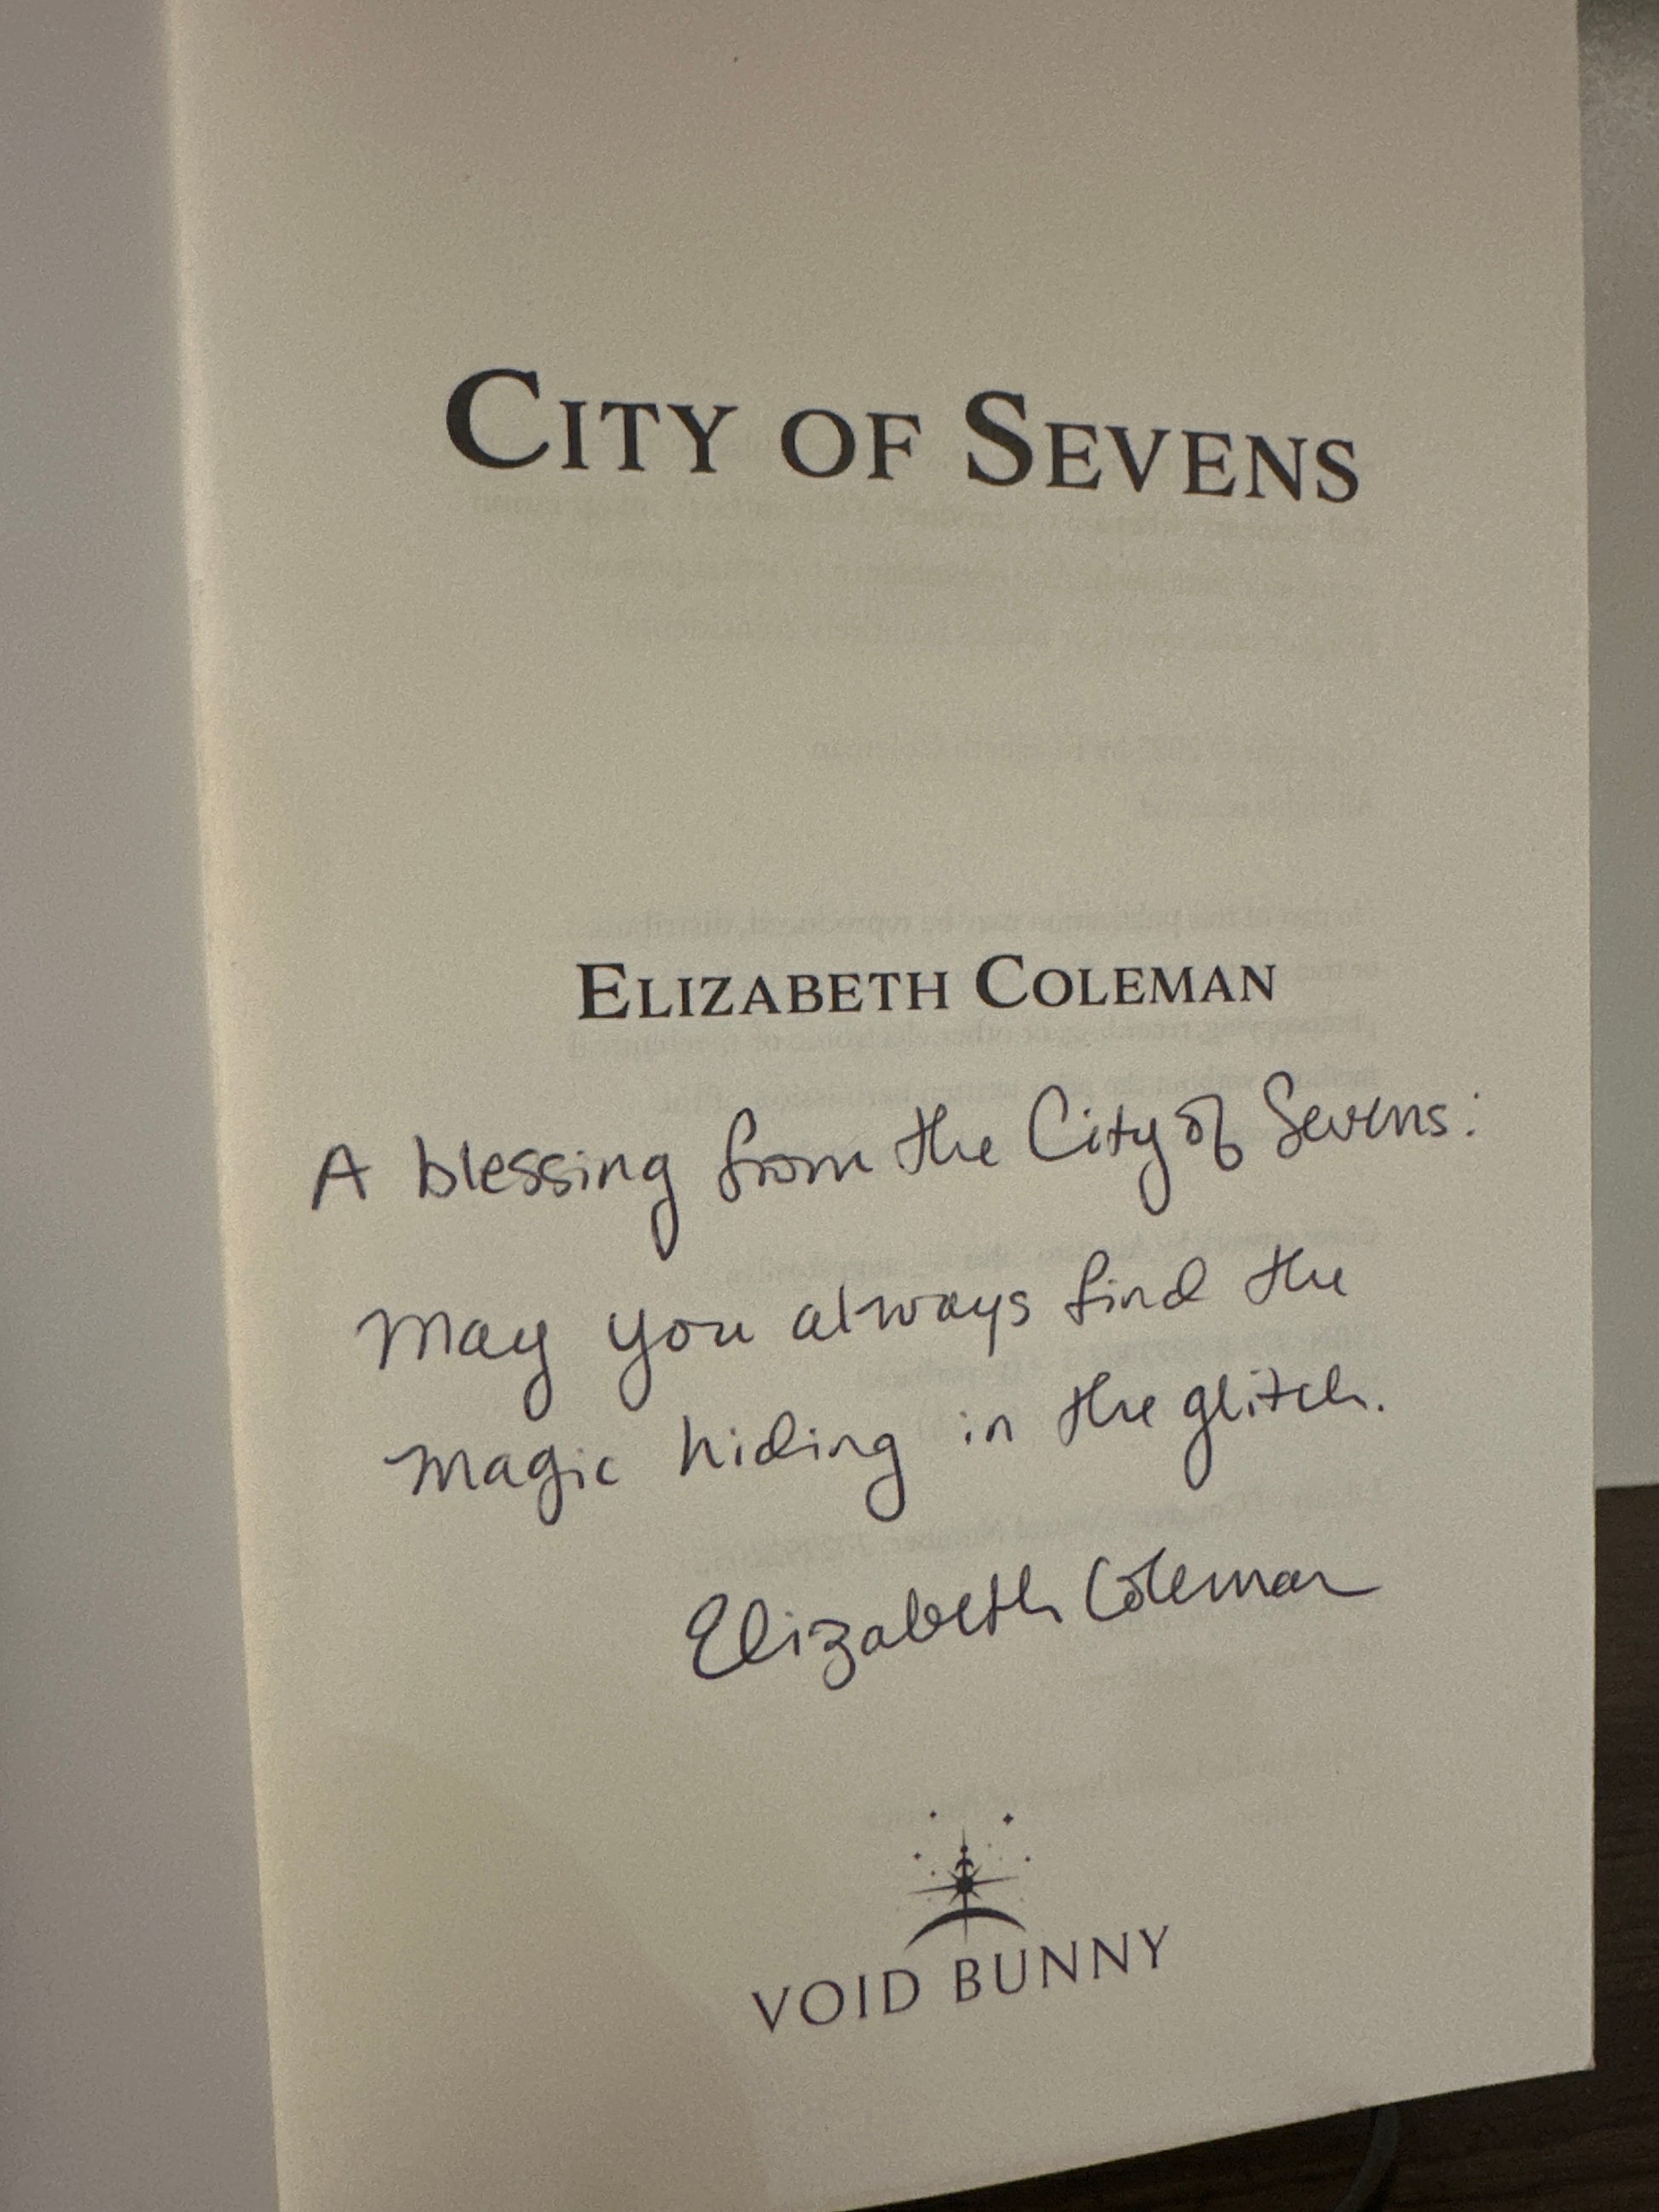 CITY OF SEVENS
ELIZABETH COLEMAN
A blessing from the City of Sevens:
May you always find the
magic hiding in the glitch.
Elizabeth Coleman
VOID BUNNY